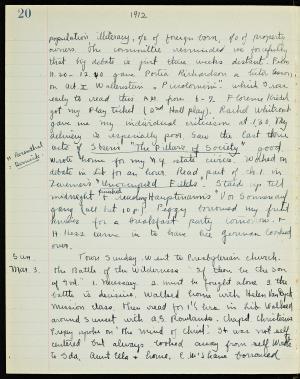 20
1912
population illiteracy, % of foreign born, % of property
owners. The committee reminded me forcefully
that by debate is just three weeks distant. Palm
11.20-12.40 gave Portia Richardson a tutor lesson,
on Act I Wallenstein, "Piccolomini" which I rose
early to read this A.M. from 6-7. Florence
got my Play ticket (2nd Hall play). Rachel Whitcomb
gave me my individual criticism at 1.30. My
delivery is especially poor. Saw the last three
acts of Ibsen's "The Pillars of Society" good
wrote home for my N.Y. state civics. Walked on
debate in lib for an hour. Read part of ch. 1 in
Zwemer's "Unoccupied Fields". Stayed up till
midnight & finished reading Hauptmann's "Vor Sonnenauf-
gang" (all but 10 p.) Peggy borrowed my
knives for a breakfast party tomorrow.
H came in to have her german looked
over.
Sun.
Mar. 3.
Town Sunday. Went to Presbyterian church.
The Battle of the Wilderness. If thou be the Son
of God. 1. necessary. 2. must be fought alone 3. the
battle is decisive. Walked home with Helen Van
Mission class. Then read for in lib. Walked
around Sunset with A.S. Rowlands. Chapel Christians
Prexy spoke on "The mind of Christ". It was not self
centered but always looked away from self. Wrote
to Ida, Aunt Ella & home. borrowed